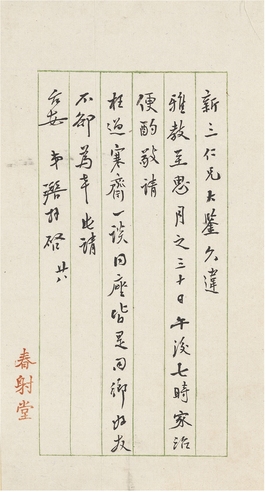 新三仁兄大鉴久違
雅教至思月之三十日午後七時家治
便酌敬請
枉過寒齋一談同座皆是同鄉好友
不卻為幸此請
台安 弟 拜啓 廿八
春射堂